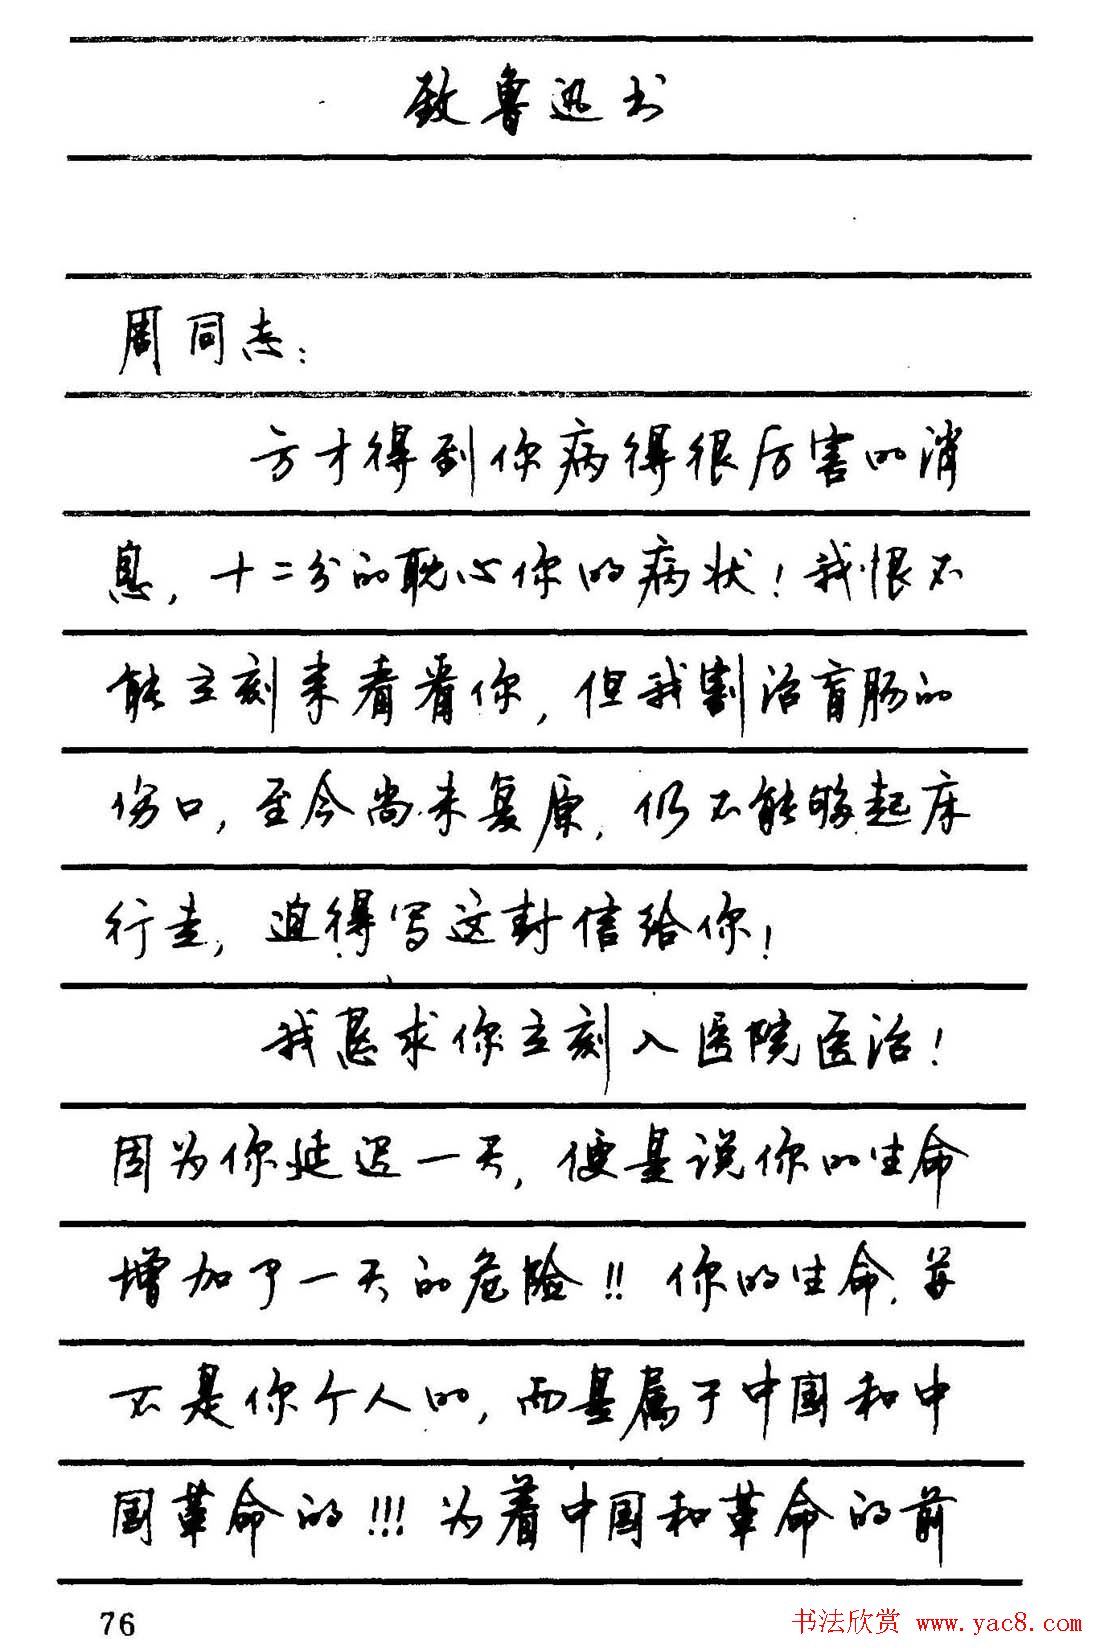 致鲁迅书
周同志：
方才得到你病得很厉害的消
息，十二分的耽心你的病状！我恨不
能立刻来看看你，但我割治盲肠的
伤口，至今尚未复原，仍不能够起床
行走，迫得写这封信给你！
我恳求你立刻入医院医治！
因为你延迟一天，便是说你的生命
增加了一天的危险！！你的生命，并
不是你个人的，而是属于中国和中
国革命的！！！为着中国和革命的前
76
书法欣赏 www.yac8.com